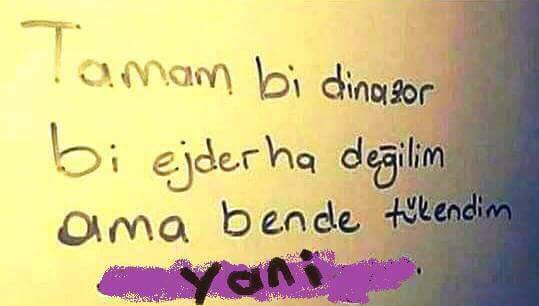 Tamam bi dinazor
bi ejderha değilim
ama bende tükendim
yani